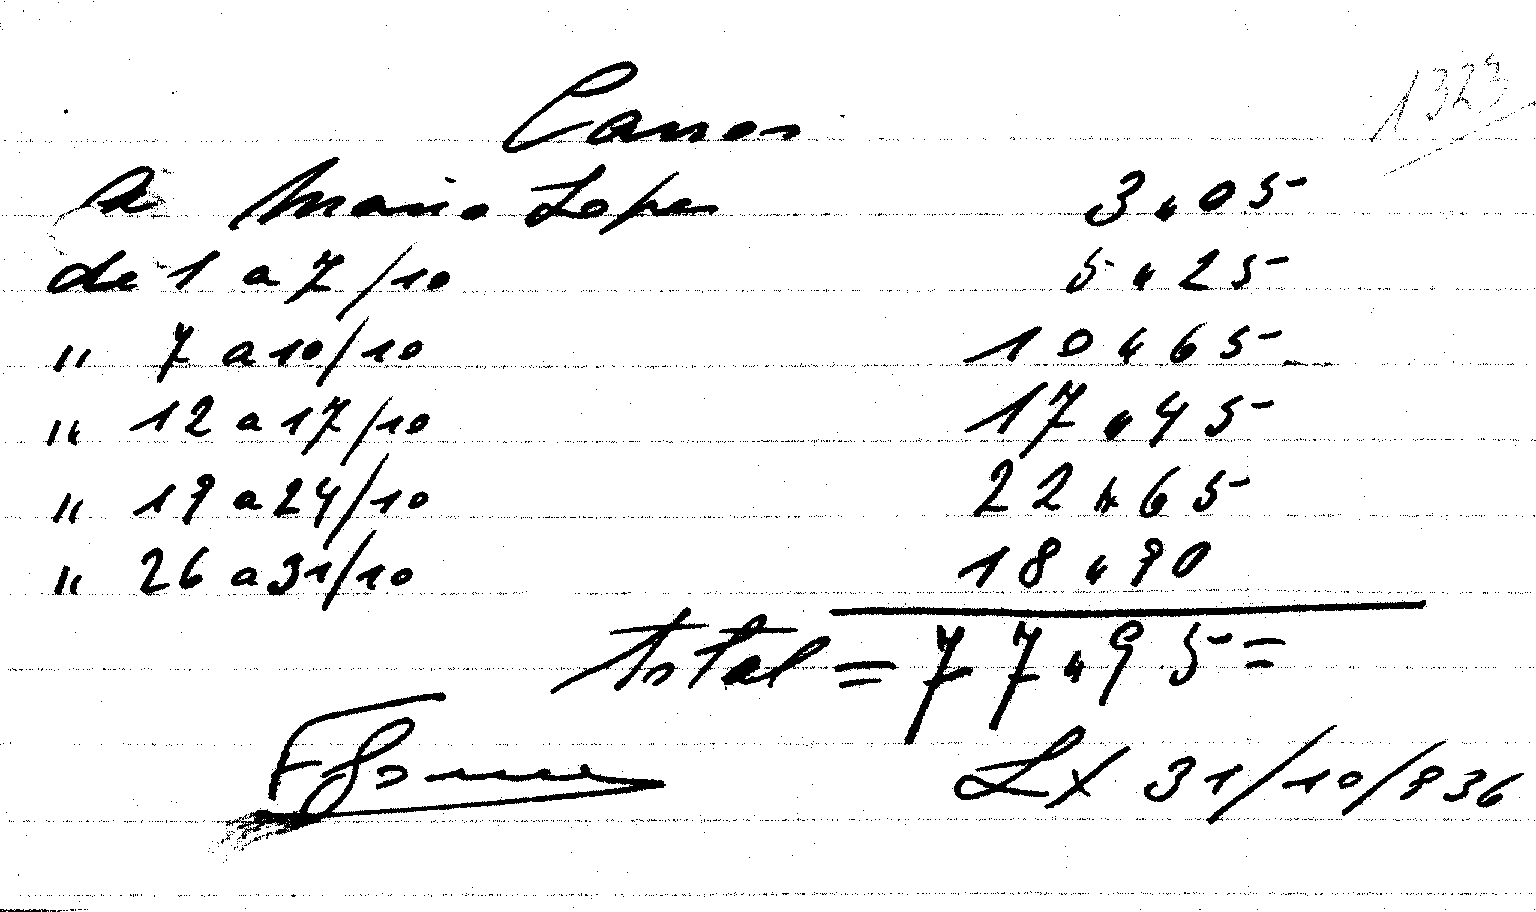 Carros
1323
A Mario Lopes 3"05
de 1 a 7/10 5"25
" 7 a 10/10 10"65
" 12 a 17/10 17"45
" 19 a 24/10 22"65
" 26 a 31/10 18"90
total = 77"95=
Lx 31/10/936